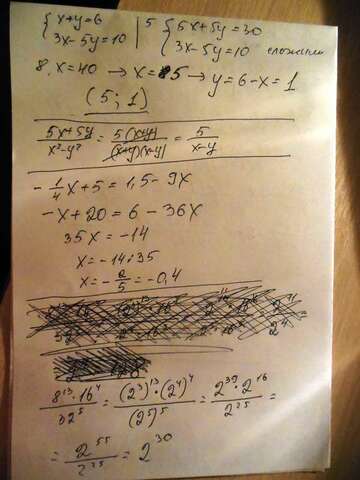 { x+y=6 | 5 { 5x+5y=30
3x-5y=10 3x-5y=10 сложим
8x=40 → x=5 → y=6-x=1
(5; 1)
(5x+5y)/(x²-y²) = 5(x+y)/((x+y)(x-y)) = 5/(x-y)
-1/4 x+5=1,5-9x
-x+20=6-36x
35x=-14
x=-14:35
x=-2/5=-0,4
(8¹³·16⁴)/32⁵ = ((2³)¹³·(2⁴)⁴)/(2⁵)⁵ = (2³⁹·2¹⁶)/2²⁵ =
= 2⁵⁵/2²⁵ = 2³⁰